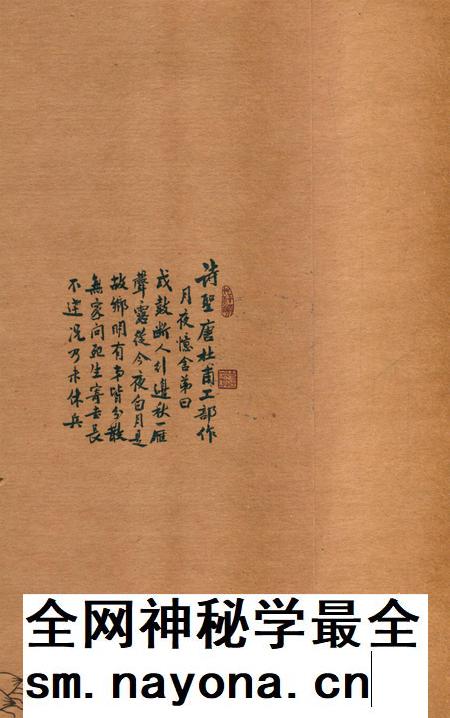 詩聖唐杜甫工部作
月夜憶舍弟曰
戍鼓斷人行邊秋一雁
聲露從今夜白月是
故鄉明有弟皆分散
無家問死生寄書長
不達況乃未休兵
全网神秘学最全
sm.nayona.cn